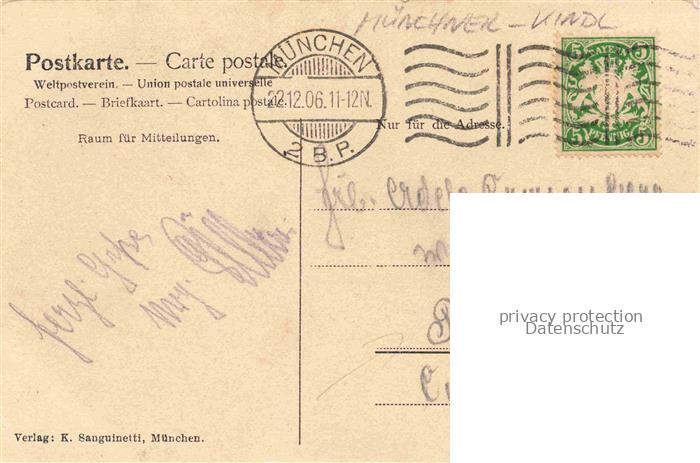 MÜNCHNER – KINDL
Postkarte. — Carte postale.
Weltpostverein. — Union postale universelle
Postcard. — Briefkaart. — Cartolina postale
Raum für Mitteilungen.
MÜNCHEN
22.12.06.11-12N.
2 B.P.
Nur für die Adresse.
5 BAYERN 5
5 PFENNIG 5
Adele
privacy protection
Datenschutz
Verlag: K. Sanguinetti, München.